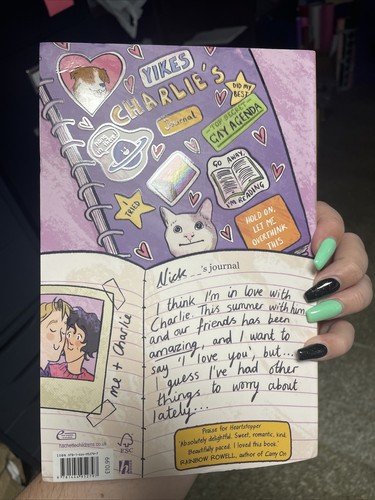 YIKES
CHARLIE'S
Journal
DID MY
BEST
TOP SECRET
GAY AGENDA
GO AWAY
I'M READING
I TRIED
HOLD ON,
LET ME
OVERTHINK
THIS
Nick_'s journal
I think I'm in love with
Charlie. This summer with him
and our friends has been
amazing, and I want to
say 'I love you', but...
I guess I've had other
things to worry about
lately...
me + Charlie
Praise for Heartstopper
'Absolutely delightful. Sweet, romantic, kind.
Beautifully paced. I loved this book.'
RAINBOW ROWELL, author of Carry On
FSC
£10.99